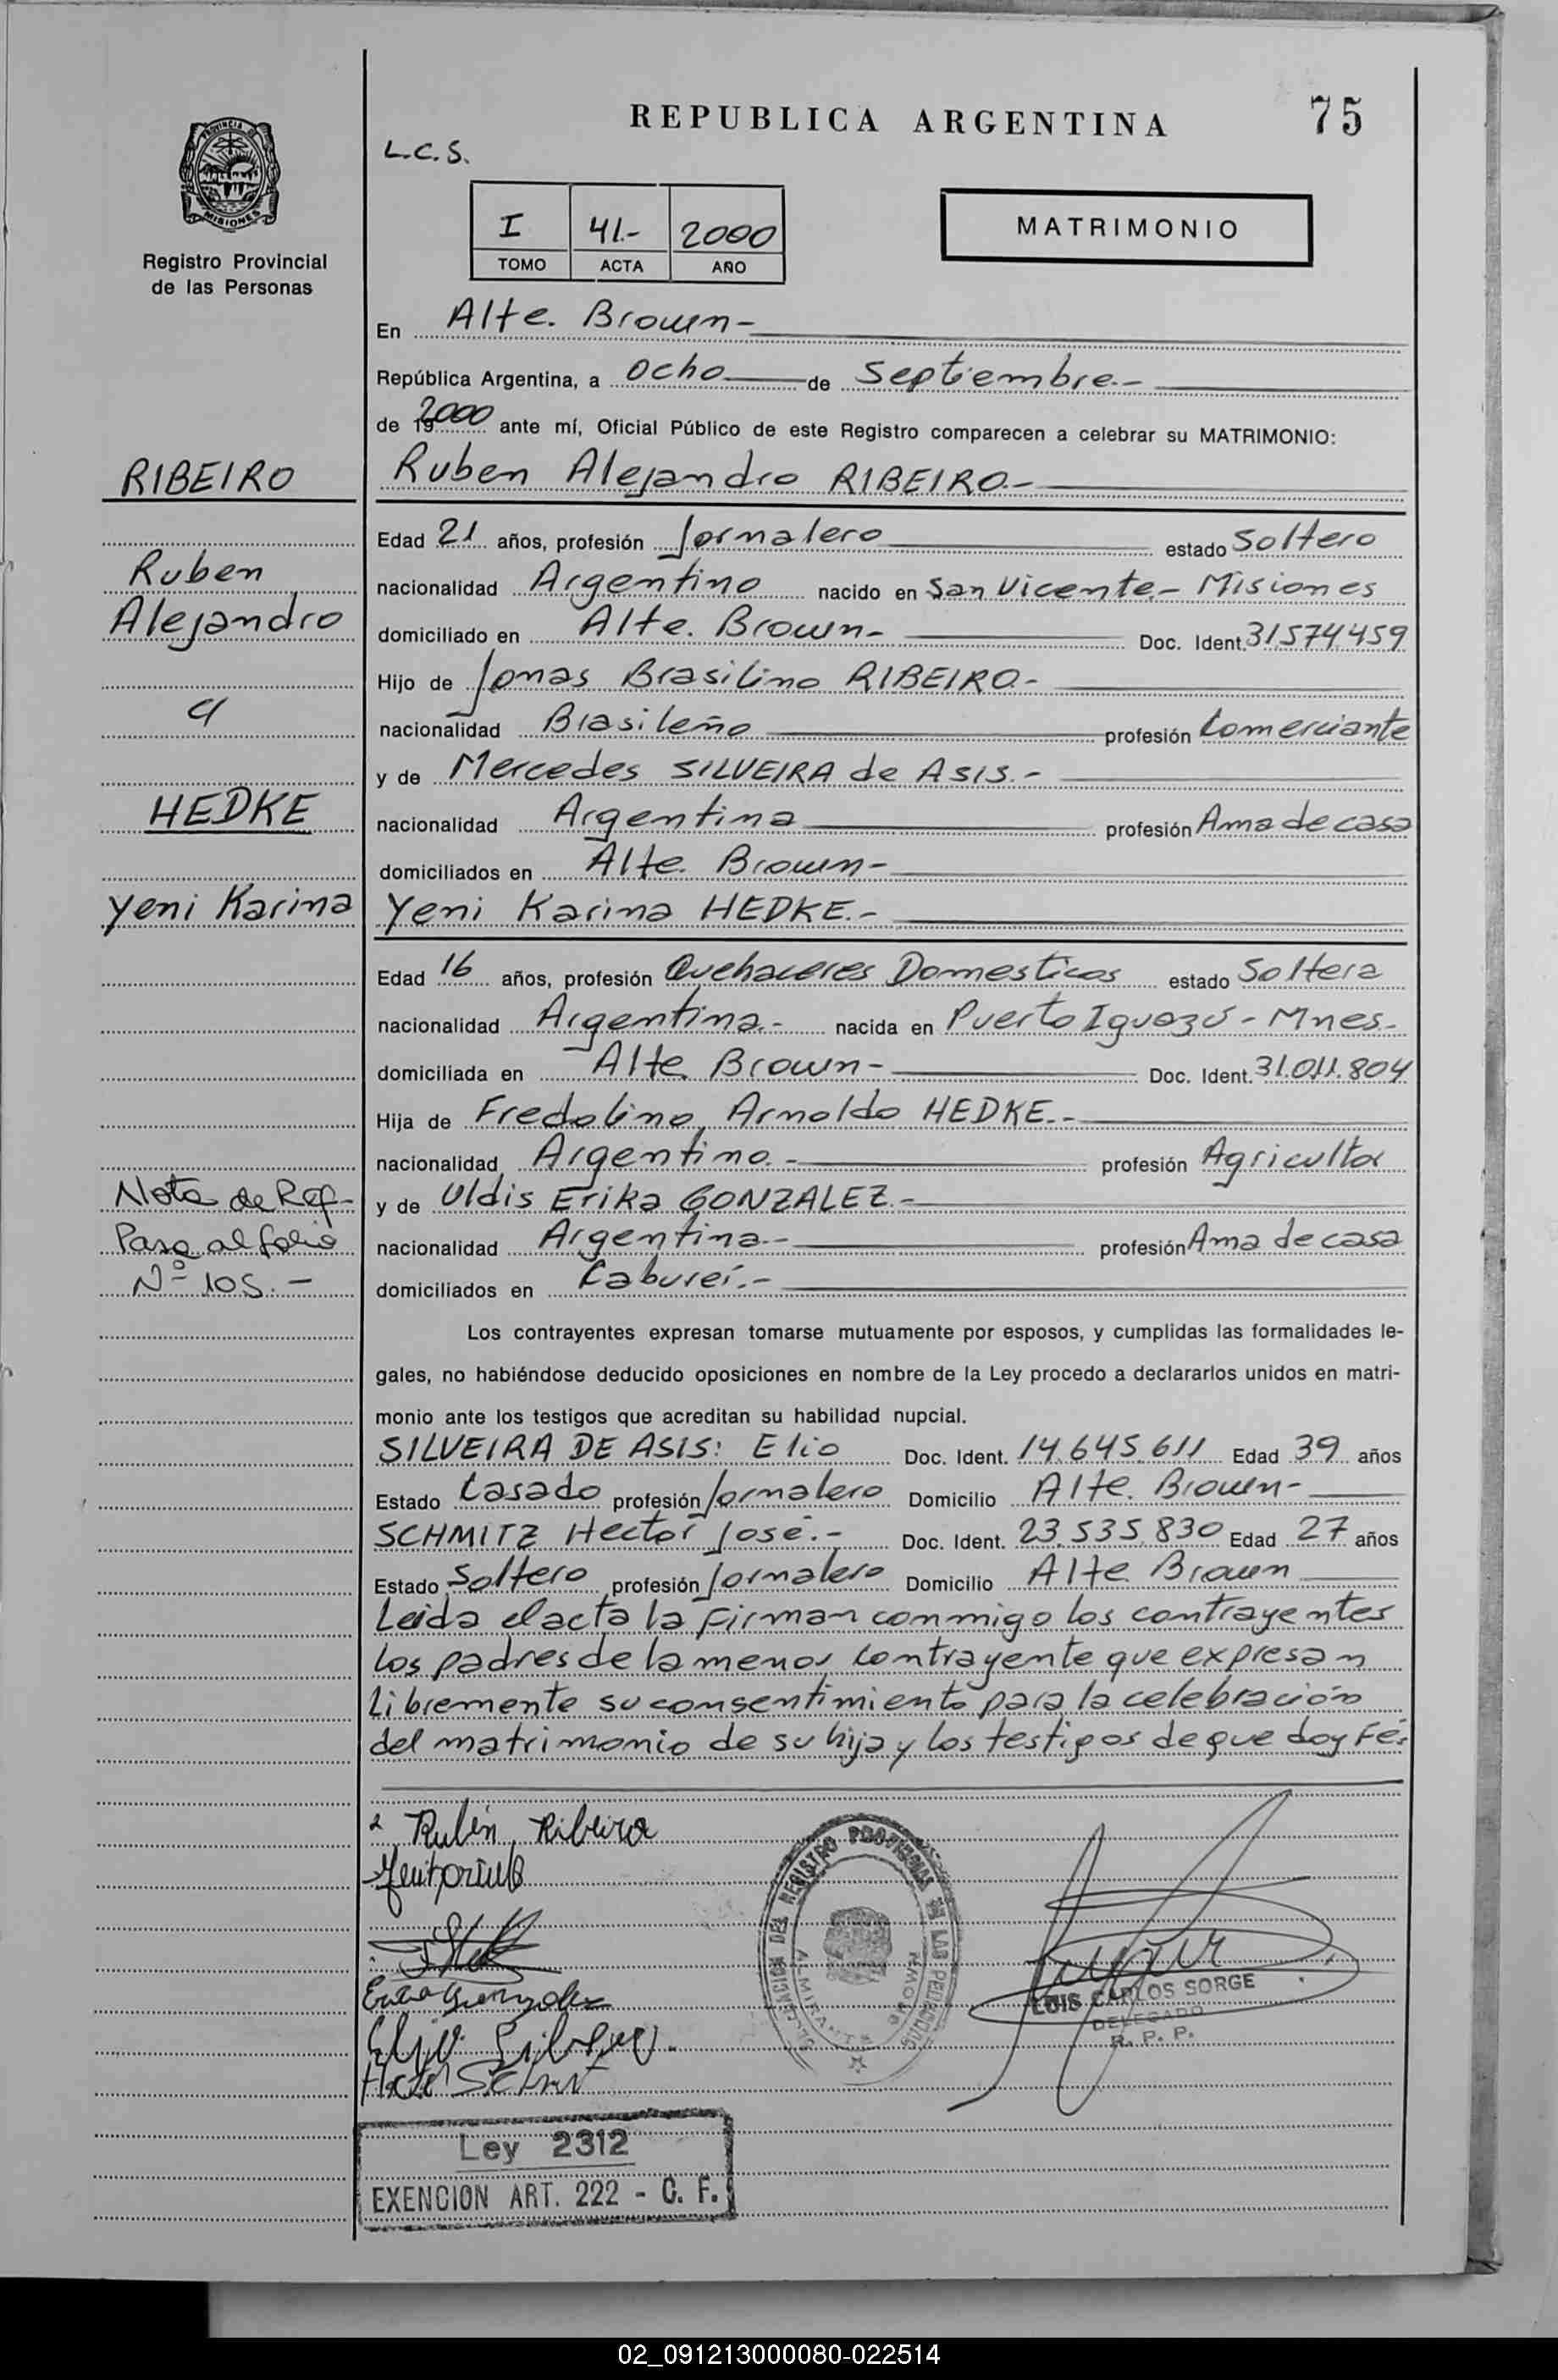 REPUBLICA ARGENTINA
75
L.C.S.
PROVINCIA DE
MISIONES
Registro Provincial
de las Personas
I 41.- 2000
TOMO ACTA AÑO
MATRIMONIO
En Alte. Brown-
República Argentina, a Ocho de Septiembre.-
de 19 2000 ante mí, Oficial Público de este Registro comparecen a celebrar su MATRIMONIO:
RIBEIRO
Ruben Alejandro RIBEIRO.-
Edad 21 años, profesión Jornalero estado Soltero
Ruben
nacionalidad Argentino nacido en San Vicente.- Misiones
Alejandro
domiciliado en Alte. Brown- Doc. Ident. 31.574.459
Hijo de Jonas Brasilino RIBEIRO.-
c/
nacionalidad Brasileño profesión Comerciante
y de Mercedes SILVEIRA de ASIS.-
HEDKE
nacionalidad Argentina profesión Ama de casa
domiciliados en Alte. Brown-
Yeni Karina
Yeni Karina HEDKE.-
Edad 16 años, profesión Quehaceres Domesticos estado Soltera
nacionalidad Argentina.- nacida en Puerto Iguazú - Mnes.-
domiciliada en Alte. Brown- Doc. Ident. 31.011.804
Hija de Fredolino Arnoldo HEDKE.-
nacionalidad Argentino.- profesión Agricultor
Nota de Ref-
y de Uldis Erika GONZALEZ.-
Pasa al folio
nacionalidad Argentina.- profesión Ama de casa
Nº 105.-
domiciliados en Cabureí.-
Los contrayentes expresan tomarse mutuamente por esposos, y cumplidas las formalidades le-
gales, no habiéndose deducido oposiciones en nombre de la Ley procedo a declararlos unidos en matri-
monio ante los testigos que acreditan su habilidad nupcial.
SILVEIRA DE ASIS: Elio Doc. Ident. 14.645.611 Edad 39 años
Estado Casado profesión Jornalero Domicilio Alte. Brown-
SCHMITZ Hector José.- Doc. Ident. 23.535.830 Edad 27 años
Estado Soltero profesión Jornalero Domicilio Alte Brown
Leida el acta la firman conmigo los contrayentes
los padres de la menor contrayente que expresan
Libremente su consentimiento para la celebración
del matrimonio de su hija y los testigos de que doy Fé.
Rubén Ribeiro
Erica Gonzalez
DELEGACION DEL REGISTRO PROVINCIAL DE LAS PERSONAS
ALMIRANTE BROWN
LUIS CARLOS SORGE
DELEGADO
R. P. P.
Ley 2312
EXENCION ART. 222 - C. F.
02_091213000080-022514